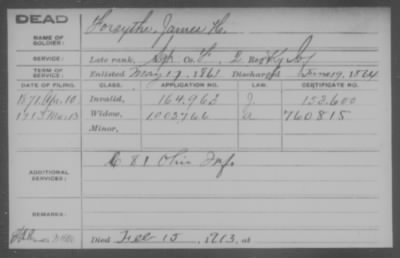 DEAD
NAME OF SOLDIER: Forsythe, James H.
SERVICE: Late rank, Co. F, 2 Reg't Ky Inf
TERM OF SERVICE: Enlisted May 17, 1861 Discharged June 19, 1864
DATE OF FILING. CLASS. APPLICATION NO. LAW. CERTIFICATE NO.
1871 Apr. 10 Invalid, 164.963 153.600
1913 Mar. 13 Widow, 1003766 760815
Minor,
ADDITIONAL SERVICES: 81 Ohio Inf.
REMARKS:
Died Feb 15, 1913, at